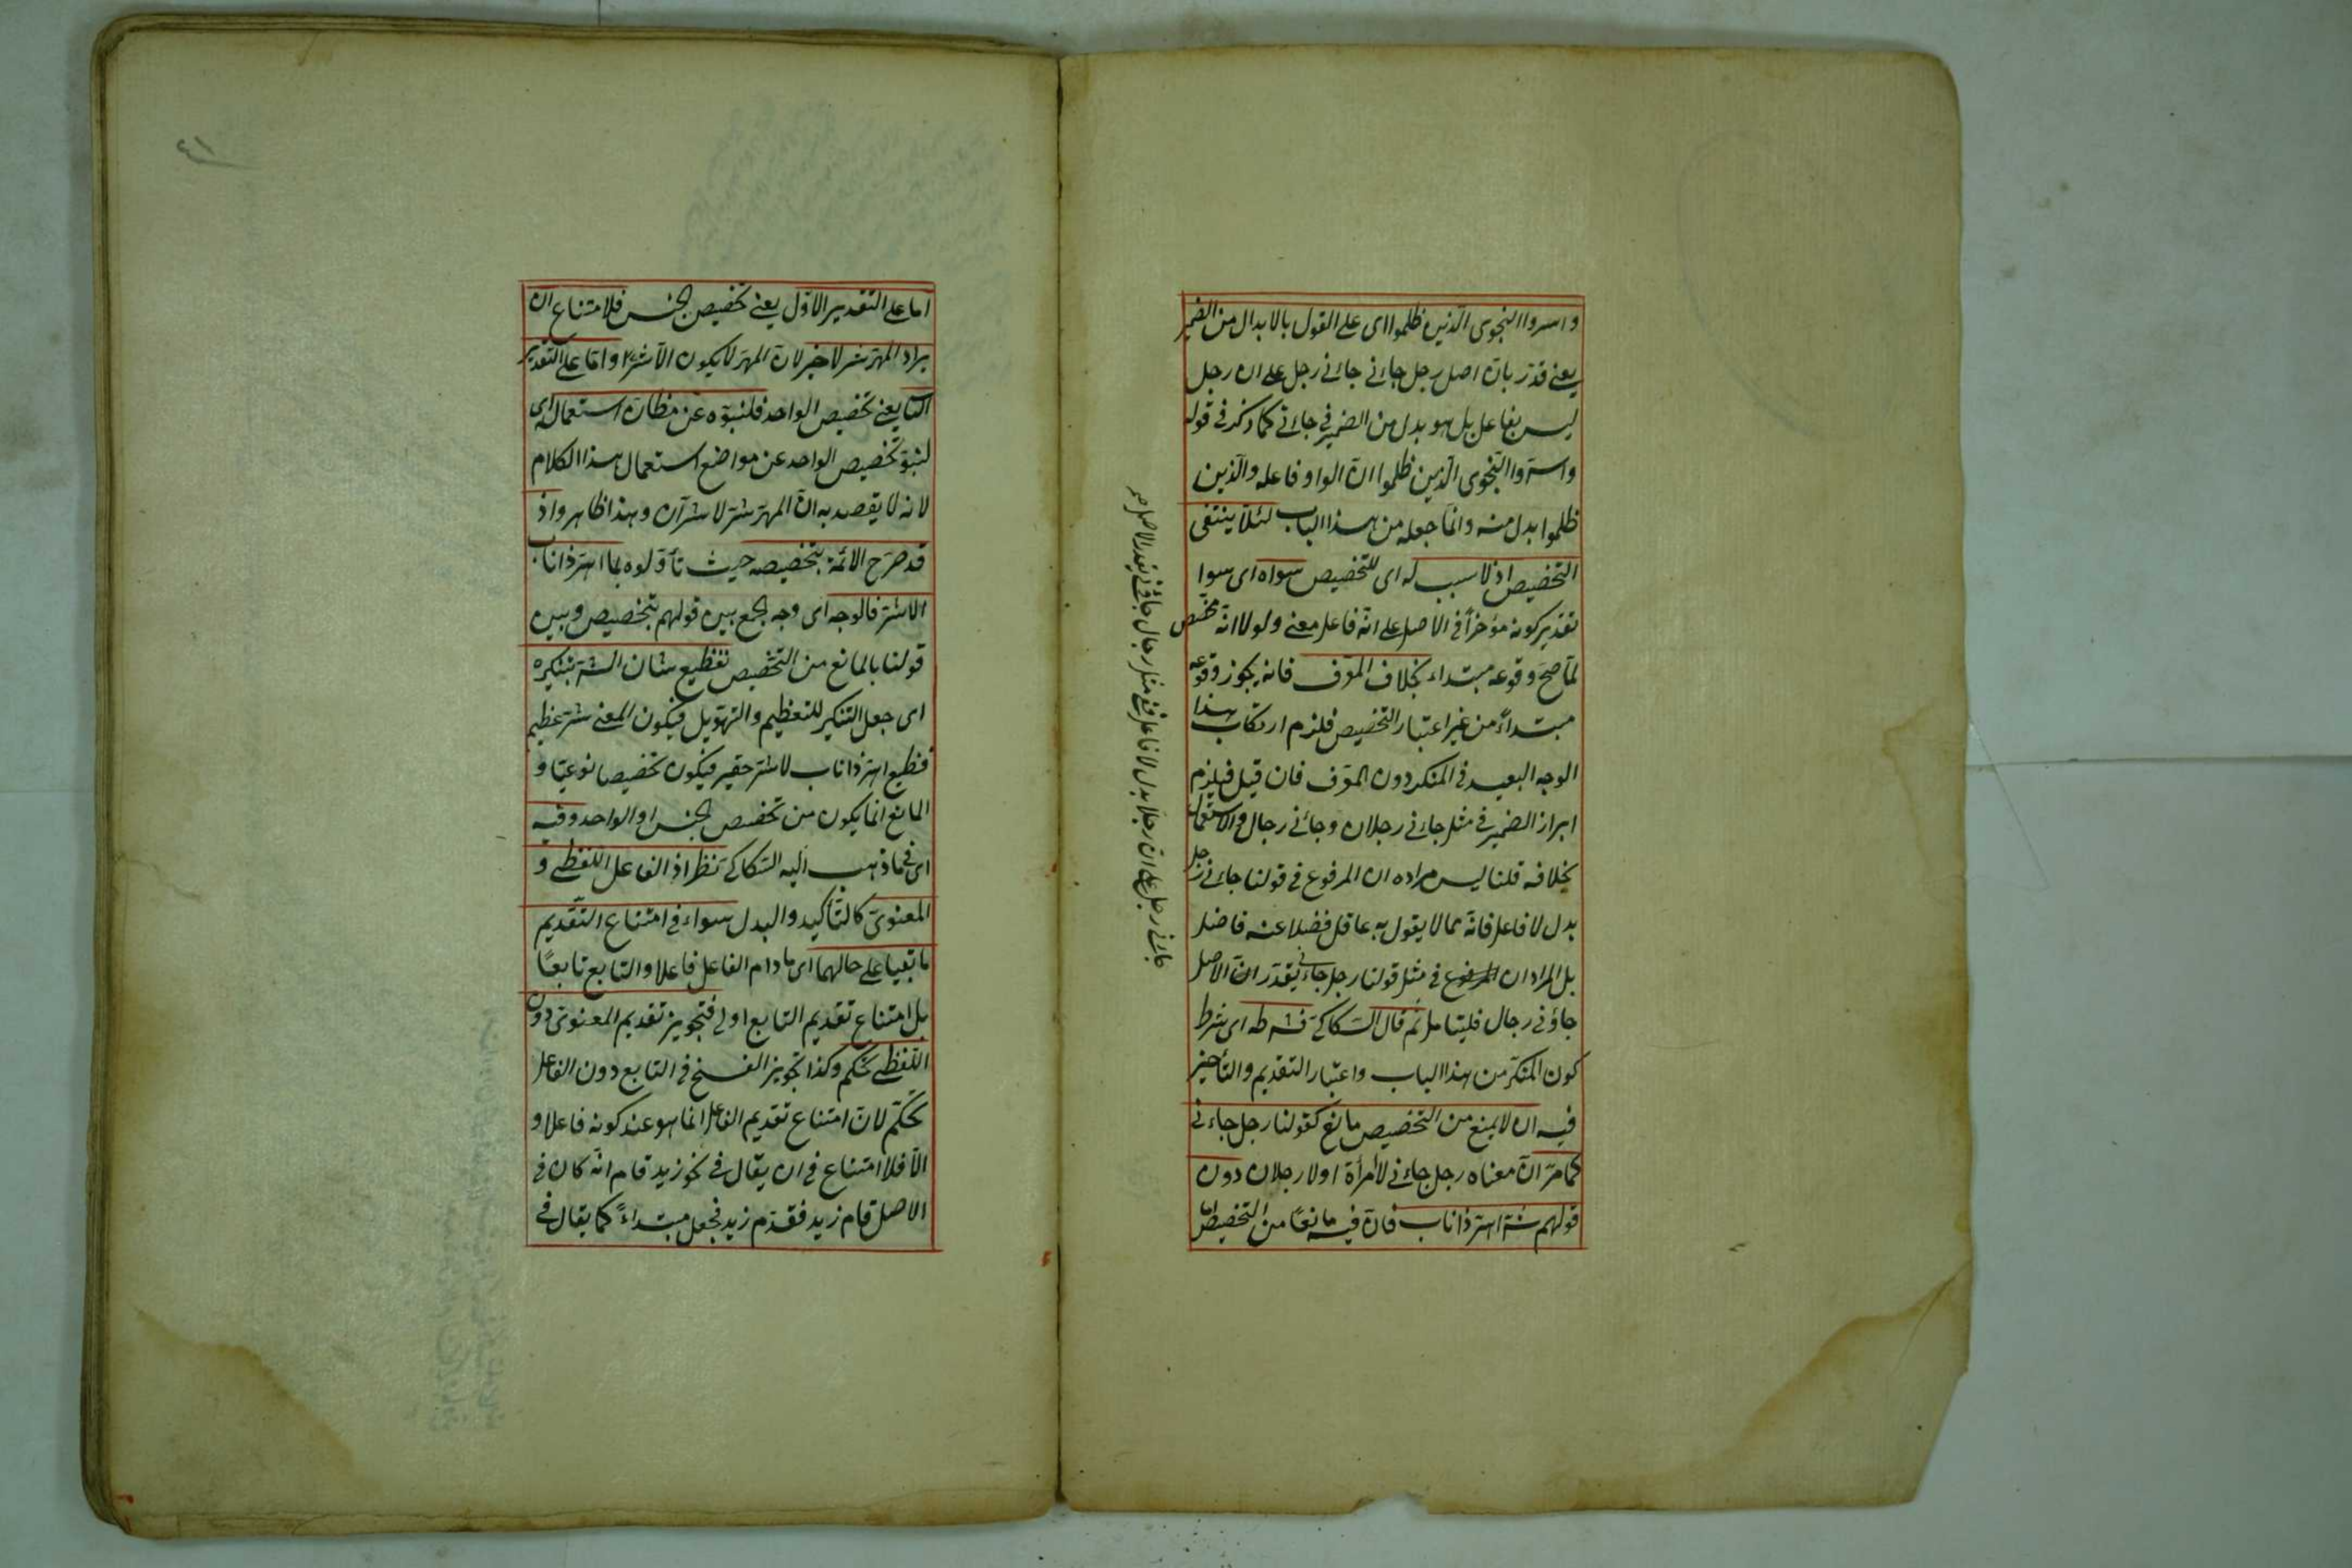 واسروا النجوى الذين ظلموا اى على القول بالابدال من الضمير
يعنى قدر بان اصل رجل جاءنى جاءنى رجل على ان رجل
ليس بفاعل بل هو بدل من الضمير فى جاءنى كما ذكر فى قوله
واسروا النجوى الذين ظلموا ان الواو فاعله والذين
ظلموا بدل منه وانما جعله من هذا الباب لئلا ينتفى
التخصيص اذ لا سبب له اى للتخصيص سواه اى سوا
تقدير كونه مؤخرا فى الاصل على انه فاعل معنى ولولا انه مخصص
لما صح وقوعه مبتداء بخلاف المعرف فانه يجوز وقوعه
مبتداءً من غير اعتبار التخصيص فلزم ارتكاب هذا
الوجه البعيد فى المنكر دون المعرف فان قيل فيلزم
ابراز الضمير فى مثل جاءنى رجلان وجاءنى رجال والاستعمال
بخلافه قلنا ليس مراده ان المرفوع فى قولنا جاءنى رجل
بدل لا فاعل فانه مما لا يقول به عاقل فضلا عنه فاضل
بل المراد ان المرفوع فى مثل قولنا رجل جاءنى يقدر ان الاصل
جاؤنى رجال فليتامل ثم قال السكاكى وشرطه اى شرط
كون المنكر من هذا الباب واعتبار التقديم والتأخير
فيه ان لا يمنع من التخصيص مانع كقولنا رجل جاءنى
كما مر ان معناه رجل جاءنى لا امرأة او لا رجلان دون
قولهم شر اهر ذا ناب فان فيه مانعًا من التخصيص اما
جاءنى رجل على ان رجلا بدل لا فاعل ففى مثل رجال جاؤنى يقدر الاصل صح
٤١
اما على التقدير الاول يعنى تخصيص الجنس فلامتناع ان
يراد المهر شر لا خير لان المهر لا يكون الا شرا واما على التقدير
الثانى يعنى تخصيص الواحد فلنبوه عن مظان استعماله اى
لنبو تخصيص الواحد عن مواضع استعمال هذا الكلام
لانه لا يقصد به ان المهر شر لا شران وهذا ظاهر واذ
قد صرح الائمة بتخصيصه حيث تأولوه بما اهر ذا ناب
الا شر فالوجه اى وجه الجمع بين قولهم بتخصيص وبين
قولنا بالمانع من التخصيص تفظيع شان الشر بتنكيره
اى جعل التنكير للتعظيم والتهويل فيكون المعنى شر عظيم
فظيع اهر ذا ناب لا شر حقير فيكون تخصيصا نوعيا و
المانع انما يكون من تخصيص الجنس او الواحد وفيه
اى فيما ذهب اليه السكاكى نظر اذ الفاعل اللفظى و
المعنوى كالتأكيد والبدل سواء فى امتناع التقديم
ما بقيا على حالهما اى ما دام الفاعل فاعلا والتابع تابعًا
بل امتناع تقديم التابع اولى فتجويز تقديم المعنوى دون
اللفظى تحكم وكذا تجويز الفسخ فى التابع دون الفاعل
تحكم لان امتناع تقديم الفاعل انما هو عند كونه فاعلا و
الا فلا امتناع فى ان يقال فى نحو زيد قام انه كان فى
الاصل قام زيد فقدم زيد فجعل مبتداءً كما يقال فى